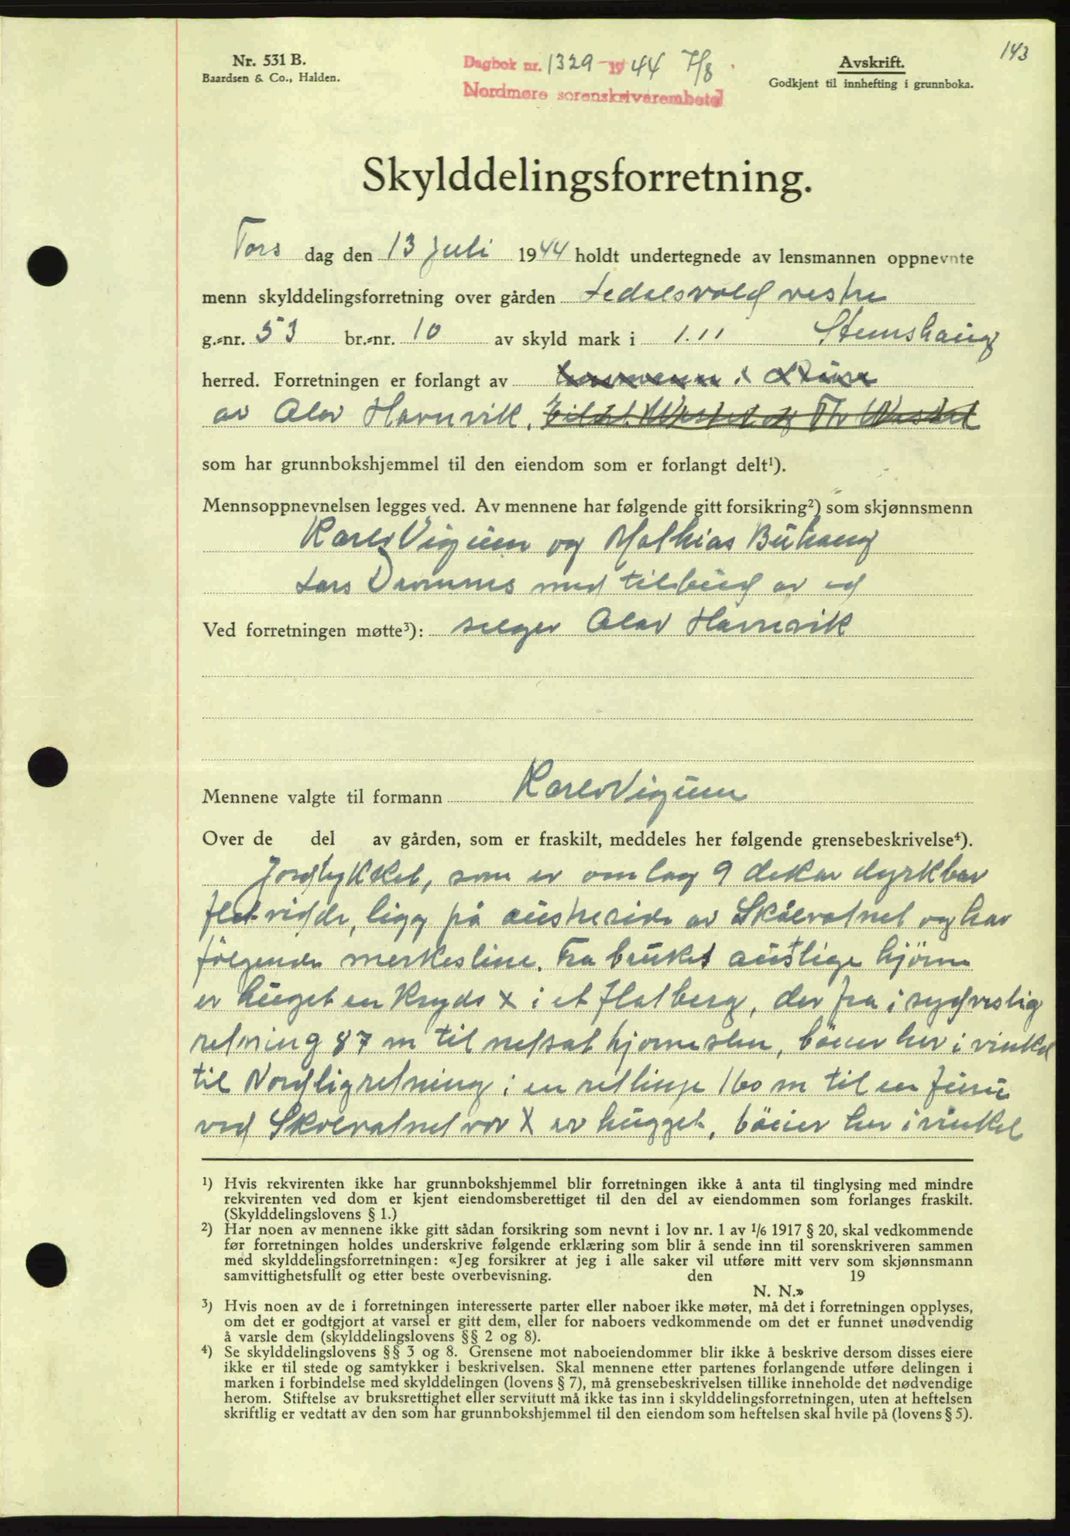 143
Nr. 531 B.
Baardsen & Co., Halden.
Dagbok nr. 1329-1944 7/8
Nordmøre sorenskriverembete
Avskrift.
Godkjent til innhefting i grunnboka.
Skylddelingsforretning.
Tors dag den 13 Juli 1944 holdt undertegnede av lensmannen oppnevnte
menn skylddelingsforretning over gården Ledalsvold vestre
g.-nr. 53 br.-nr. 10 av skyld mark i 1.11 Stemshaug
herred. Forretningen er forlangt av
av Olav Havnvik,
som har grunnbokshjemmel til den eiendom som er forlangt delt¹).
Mennsoppnevnelsen legges ved. Av mennene har følgende gitt forsikring²) som skjønnsmenn
Karl Vigum og Mathias Buhaug
Lars Drommes med tilbud av ed
Ved forretningen møtte³): selger Olav Havnvik
Mennene valgte til formann Karl Vigum
Over de del av gården, som er fraskilt, meddeles her følgende grensebeskrivelse⁴).
Jordstykket, som er om lag 9 dekar dyrkbar
flatvidde, ligg på austreside av Skålvatnet og har
følgende merkesline. Fra bruket austlige hjørne
er huget en Kryds X i et flatberg, der fra i sydvestlig
retning 87 m til nedsat hjørnesten, bøier her i vinkel
til Nordlig retning i en ret linje 160 m til en furu
ved Skålvatnet vor X er hugget, bøier her i vinkel
¹) Hvis rekvirenten ikke har grunnbokshjemmel blir forretningen ikke å anta til tinglysing med mindre
rekvirenten ved dom er kjent eiendomsberettiget til den del av eiendommen som forlanges fraskilt.
(Skylddelingslovens § 1.)
²) Har noen av mennene ikke gitt sådan forsikring som nevnt i lov nr. 1 av 1/6 1917 § 20, skal vedkommende
før forretningen holdes underskrive følgende erklæring som blir å sende inn til sorenskriveren sammen
med skylddelingsforretningen: «Jeg forsikrer at jeg i alle saker vil utføre mitt verv som skjønnsmann
samvittighetsfullt og etter beste overbevisning. den 19
N. N.»
³) Hvis noen av de i forretningen interesserte parter eller naboer ikke møter, må det i forretningen opplyses,
om det er godtgjort at varsel er gitt dem, eller for naboers vedkommende om det er funnet unødvendig
å varsle dem (skylddelingslovens §§ 2 og 8).
⁴) Se skylddelingslovens §§ 3 og 8. Grensene mot naboeiendommer blir ikke å beskrive dersom disses eiere
ikke er til stede og samtykker i beskrivelsen. Skal mennene etter partenes forlangende utføre delingen i
marken i forbindelse med skylddelingen (lovens § 7), må grensebeskrivelsen tillike inneholde det nødvendige
herom. Stiftelse av bruksrettighet eller servitutt må ikke tas inn i skylddelingsforretningen, uten at heftelsen
skriftlig er vedtatt av den som har grunnbokshjemmel til den eiendom som heftelsen skal hvile på (lovens § 5).